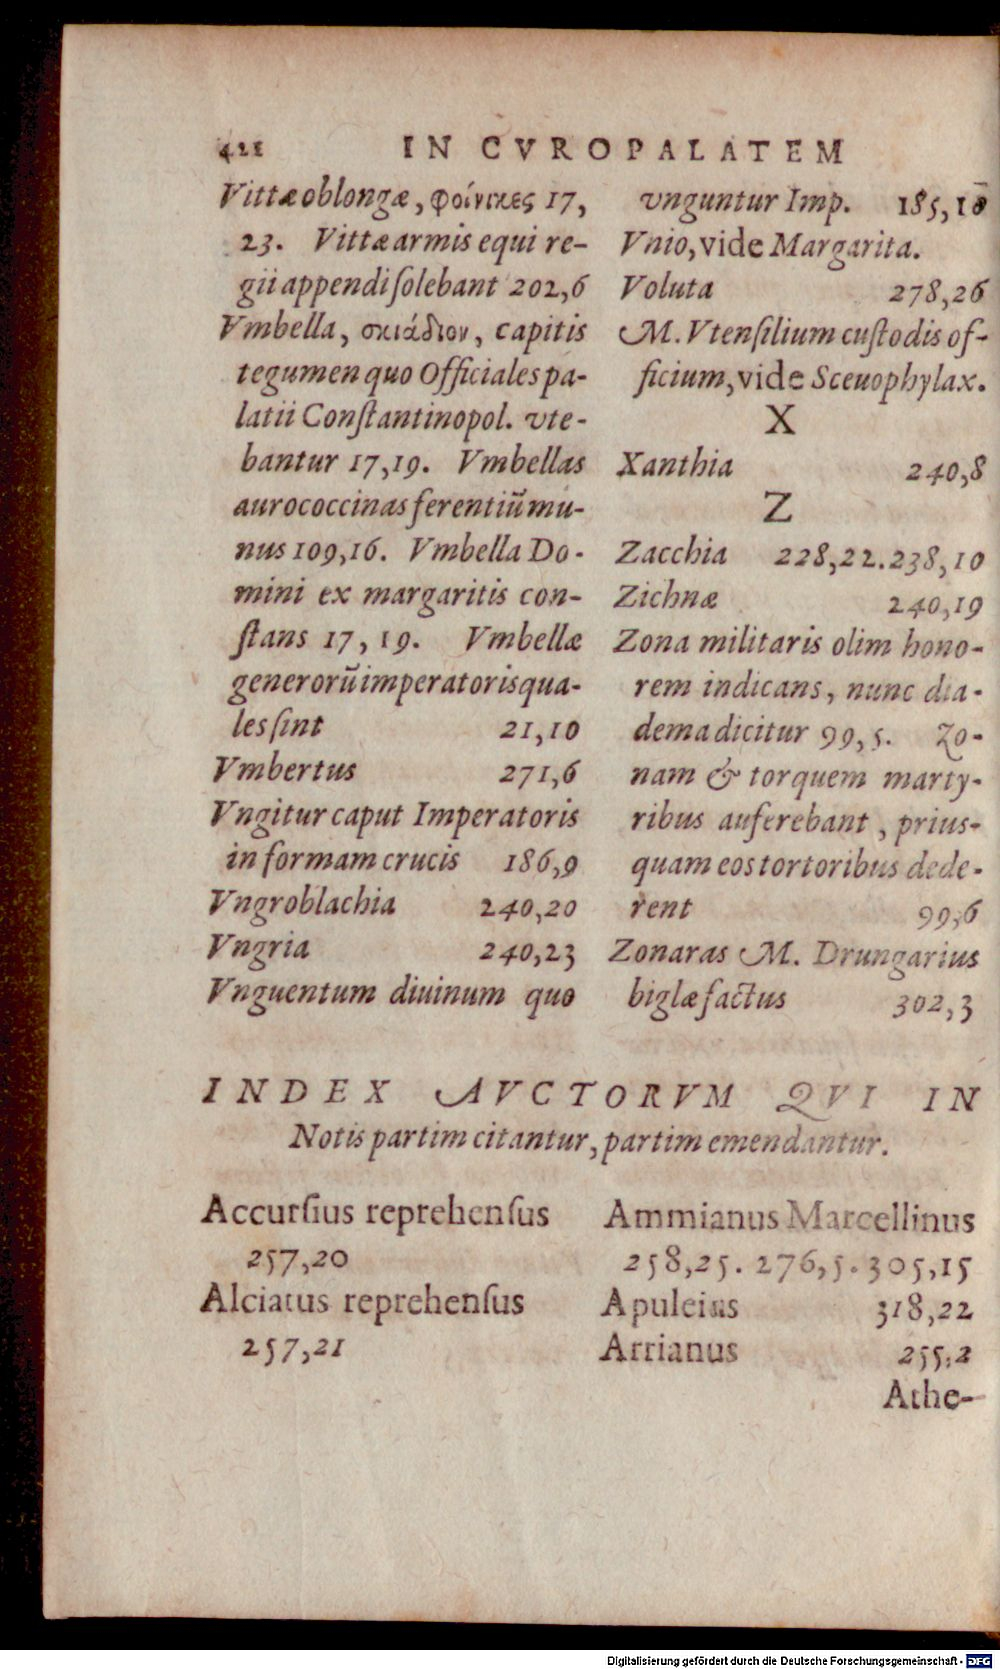 421 IN CVROPALATEM
Vittæ oblongæ, φοίνικες 17,
23. Vittæ armis equi re-
gii appendi ſolebant 202,6
Vmbella, σκιάδιον, capitis
tegumen quo Officiales pa-
latii Conſtantinopol. vte-
bantur 17,19. Vmbellas
aurococcinas ferentiũ mu-
nus 109,16. Vmbella Do-
mini ex margaritis con-
ſtans 17, 19. Vmbellæ
generorũ imperatoris qua-
les ſint 21,10
Vmbertus 271,6
Vngitur caput Imperatoris
in formam crucis 186,9
Vngroblachia 240,20
Vngria 240,23
Vnguentum diuinum quo
vnguntur Imp. 185,10
Vnio, vide Margarita.
Voluta 278,26
M. Vtenſilium cuſtodis of-
ficium, vide Sceuophylax.
X
Xanthia 240,8
Z
Zacchia 228,22. 238,10
Zichnæ 240,19
Zona militaris olim hono-
rem indicans, nunc dia-
dema dicitur 99,5. Zo-
nam & torquem marty-
ribus auferebant, prius-
quam eos tortoribus dede-
rent 99,6
Zonaras M. Drungarius
biglæ factus 302,3
INDEX AVCTORVM QVI IN
Notis partim citantur, partim emendantur.
Accurſius reprehenſus
257,20
Alciatus reprehenſus
257,21
Ammianus Marcellinus
258,25. 276,5. 305,15
Apuleius 318,22
Arrianus 255,2
Athe-
Digitalisierung gefördert durch die Deutsche Forschungsgemeinschaft - DFG